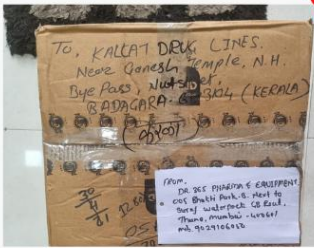 To, KALLAT DRUG LINES.
Near Ganesh Temple, N.H.
Bye Pass, Nut Street,
BADAGARA. 3104 (KERALA)
30
4
21
FROM,
DR 365 PHARMA & EQUIPMENT
005 Bhakti Park-B. Next to
Suraj waterpark GB Road,
Thane, Mumbai - 400601
mb. 9029106058